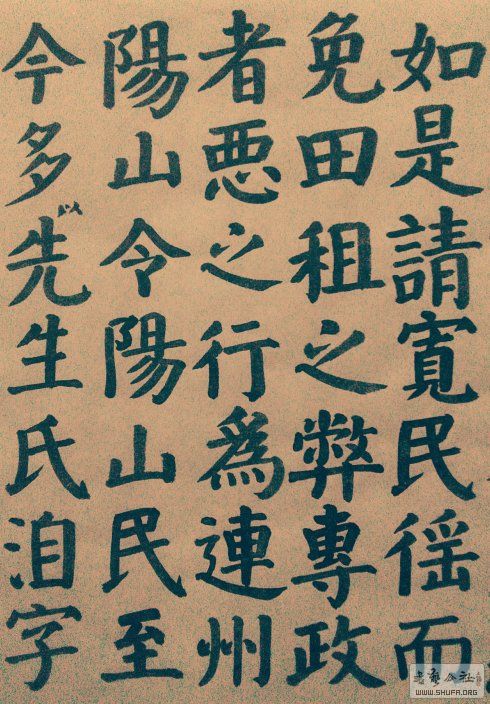 如是請寬民徭而
免田租之弊專政
者悪之行爲連州
陽山令陽山民至
今多以先生氏洎字
書藝公社
WWW.SHUFA.ORG